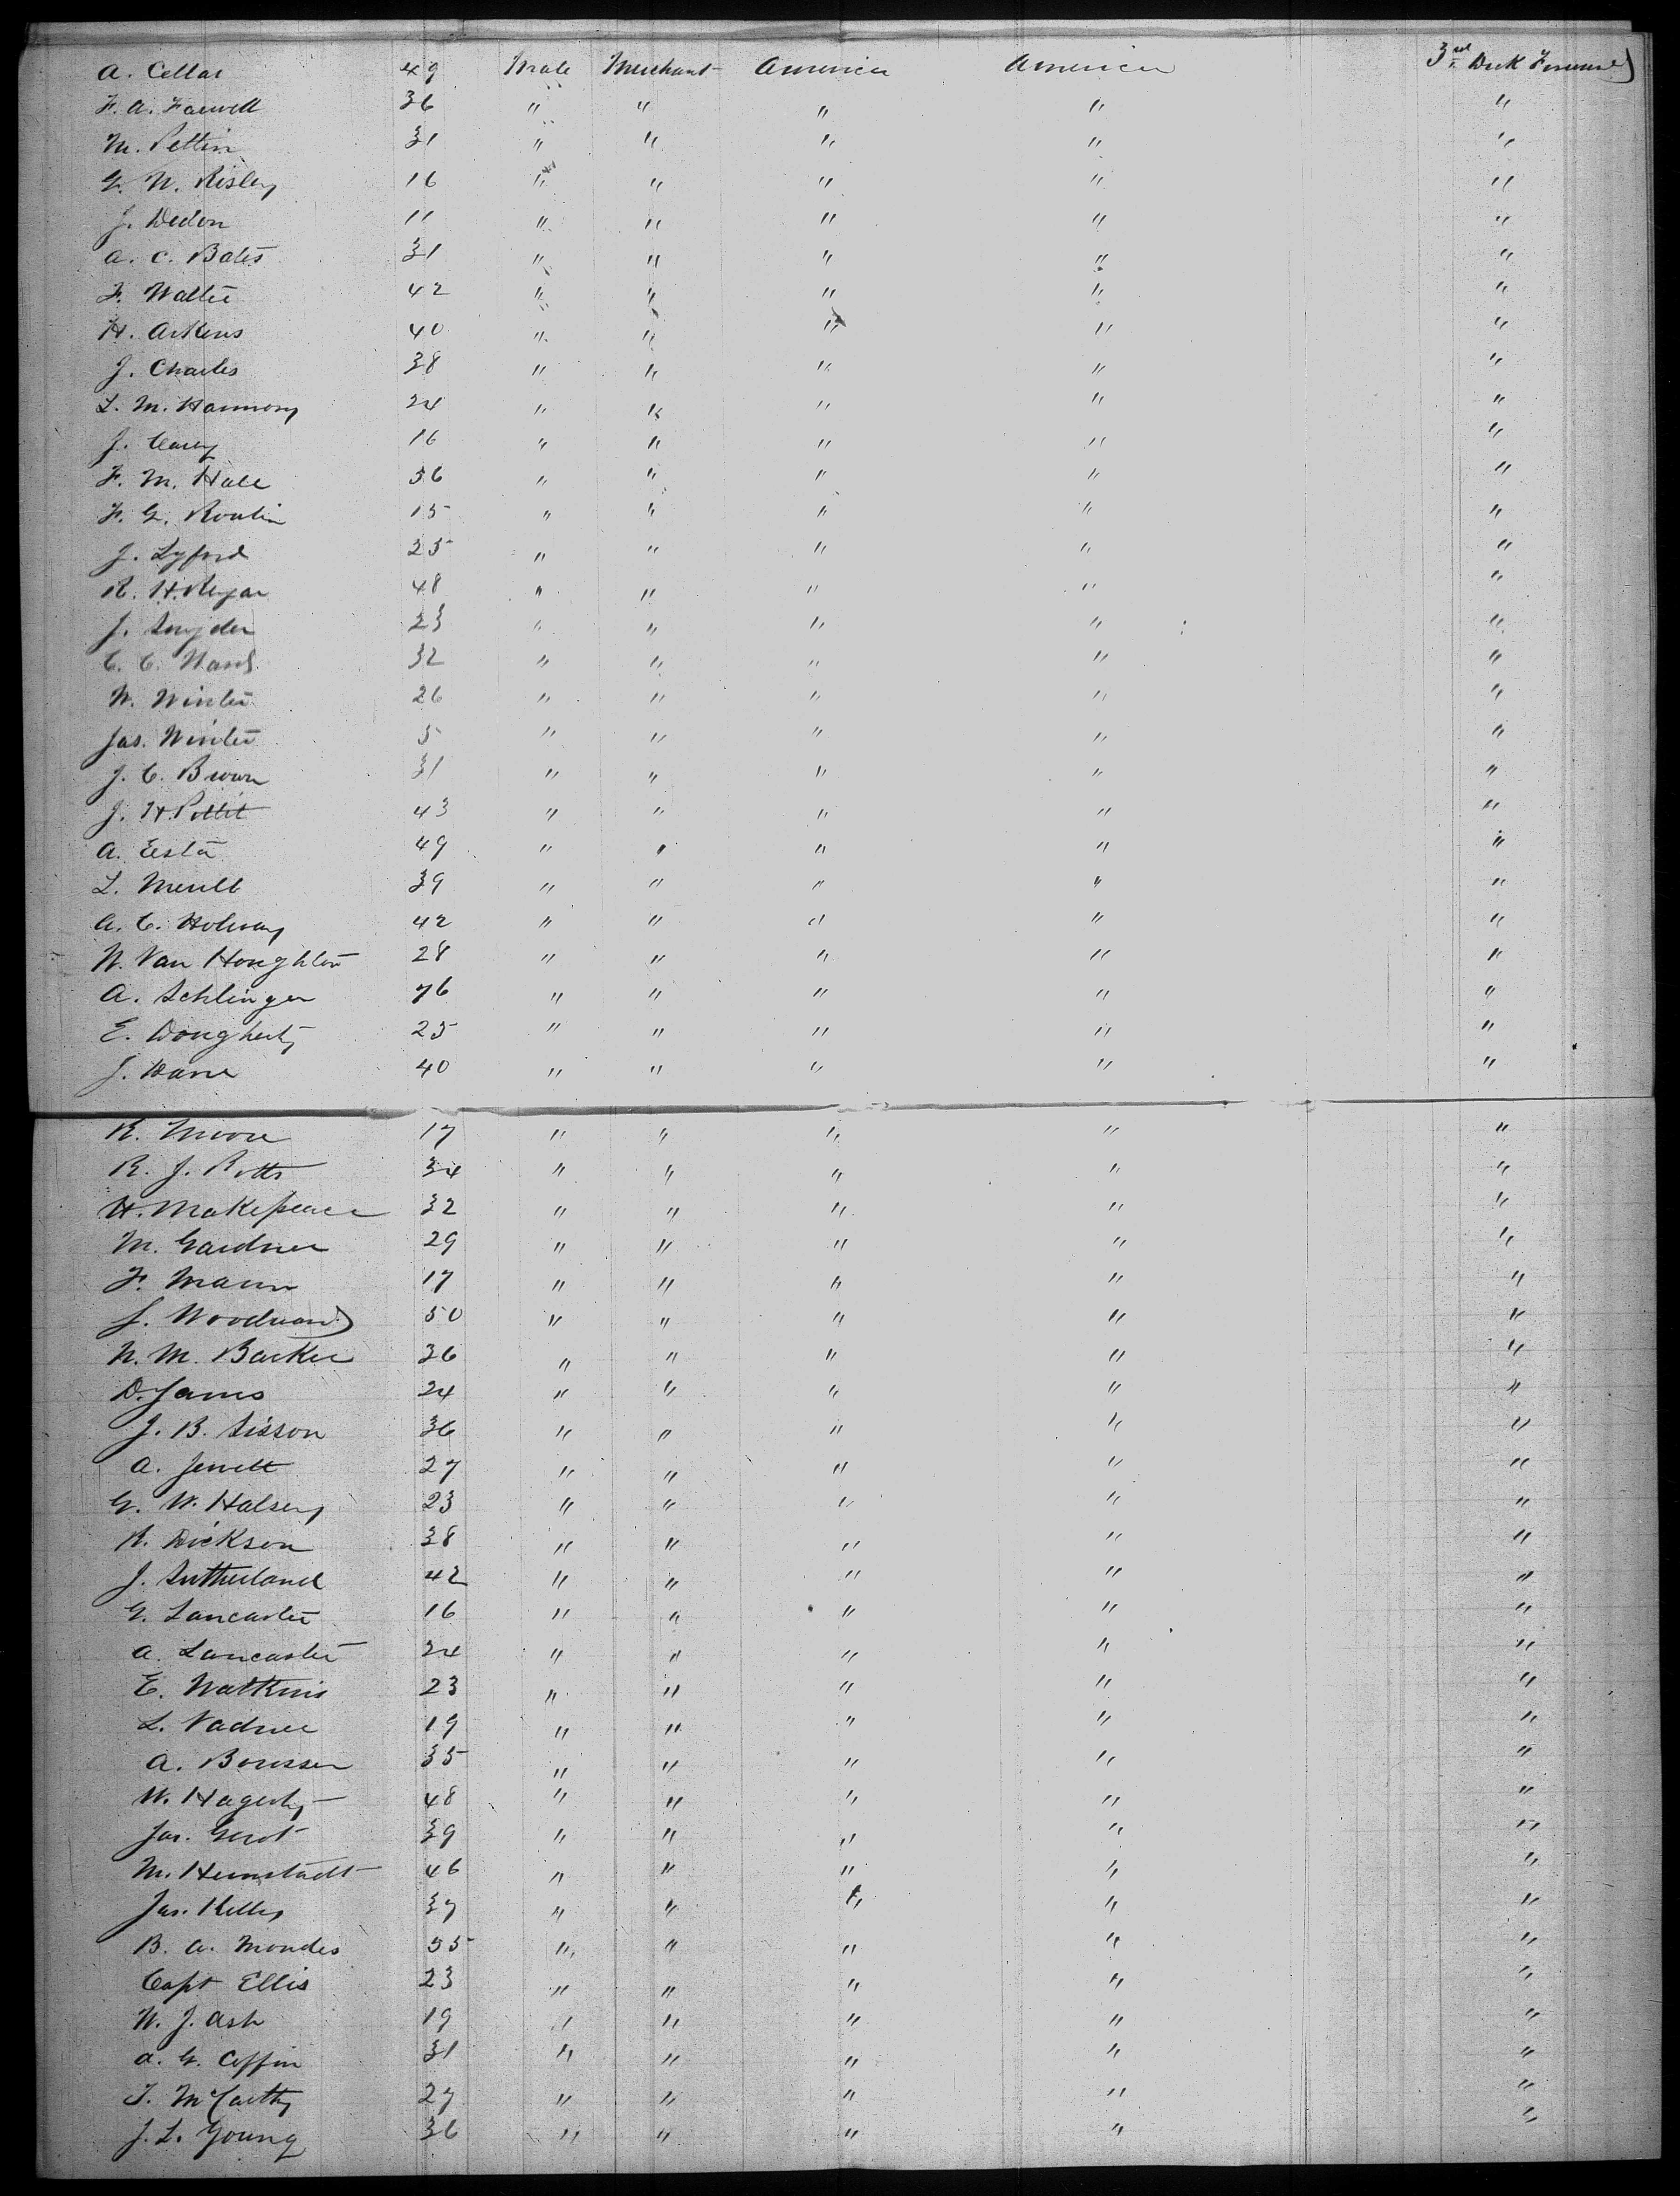 A. Cellar 49 Male Merchant America America 3rd Deck Forward
F. A. Farwell 36 " " " " "
M. Pettin 31 " " " " "
G. W. Risley 16 " " " " "
J. Dedon 11 " " " " "
A. C. Bates 31 " " " " "
F. Walter 42 " " " " "
H. Arkens 40 " " " " "
J. Charles 38 " " " " "
L. M. Harmony 24 " " " " "
J. Carey 16 " " " " "
F. M. Hall 56 " " " " "
F. G. Rontin 15 " " " " "
J. Lyford 25 " " " " "
R. H. 48 " " " " "
J. Snyder 23 " " " " "
C. C. Ward 32 " " " " "
W. Winter 26 " " " " "
Jas. Winter 5 " " " " "
J. C. Brown 31 " " " " "
J. H. Pettit 43 " " " " "
A. Esta 49 " " " " "
L. Merill 39 " " " " "
A. C. Holway 42 " " " " "
W. Van Houghton 28 " " " " "
A. Schlinger 76 " " " " "
E. Dougherty 25 " " " " "
J. Bane 40 " " " " "
R. Moore 17 " " " " "
R. J. Potts 34 " " " " "
H. Makepeace 32 " " " " "
M. Gardner 29 " " " " "
F. Mann 17 " " " " "
S. Woodward 50 " " " " "
W. M. Barker 36 " " " " "
D. James 24 " " " " "
J. B. Sisson 36 " " " " "
A. Jewett 27 " " " " "
G. W. Halsey 23 " " " " "
R. Dickson 38 " " " " "
J. Sutherland 42 " " " " "
G. Lancaster 16 " " " " "
A. Lancaster 24 " " " " "
E. Watkins 23 " " " " "
L. Vadner 19 " " " " "
A. Bowsser 35 " " " " "
W. Hagerty 48 " " " " "
Jas. Grot 39 " " " " "
M. Heimstadt 46 " " " " "
Jas. Kelley 37 " " " " "
B. A. Mondes 55 " " " " "
Capt Ellis 23 " " " " "
W. J. Ash 19 " " " " "
A. G. Coffin 31 " " " " "
T. McCarthy 27 " " " " "
J. L. Young 36 " " " " "